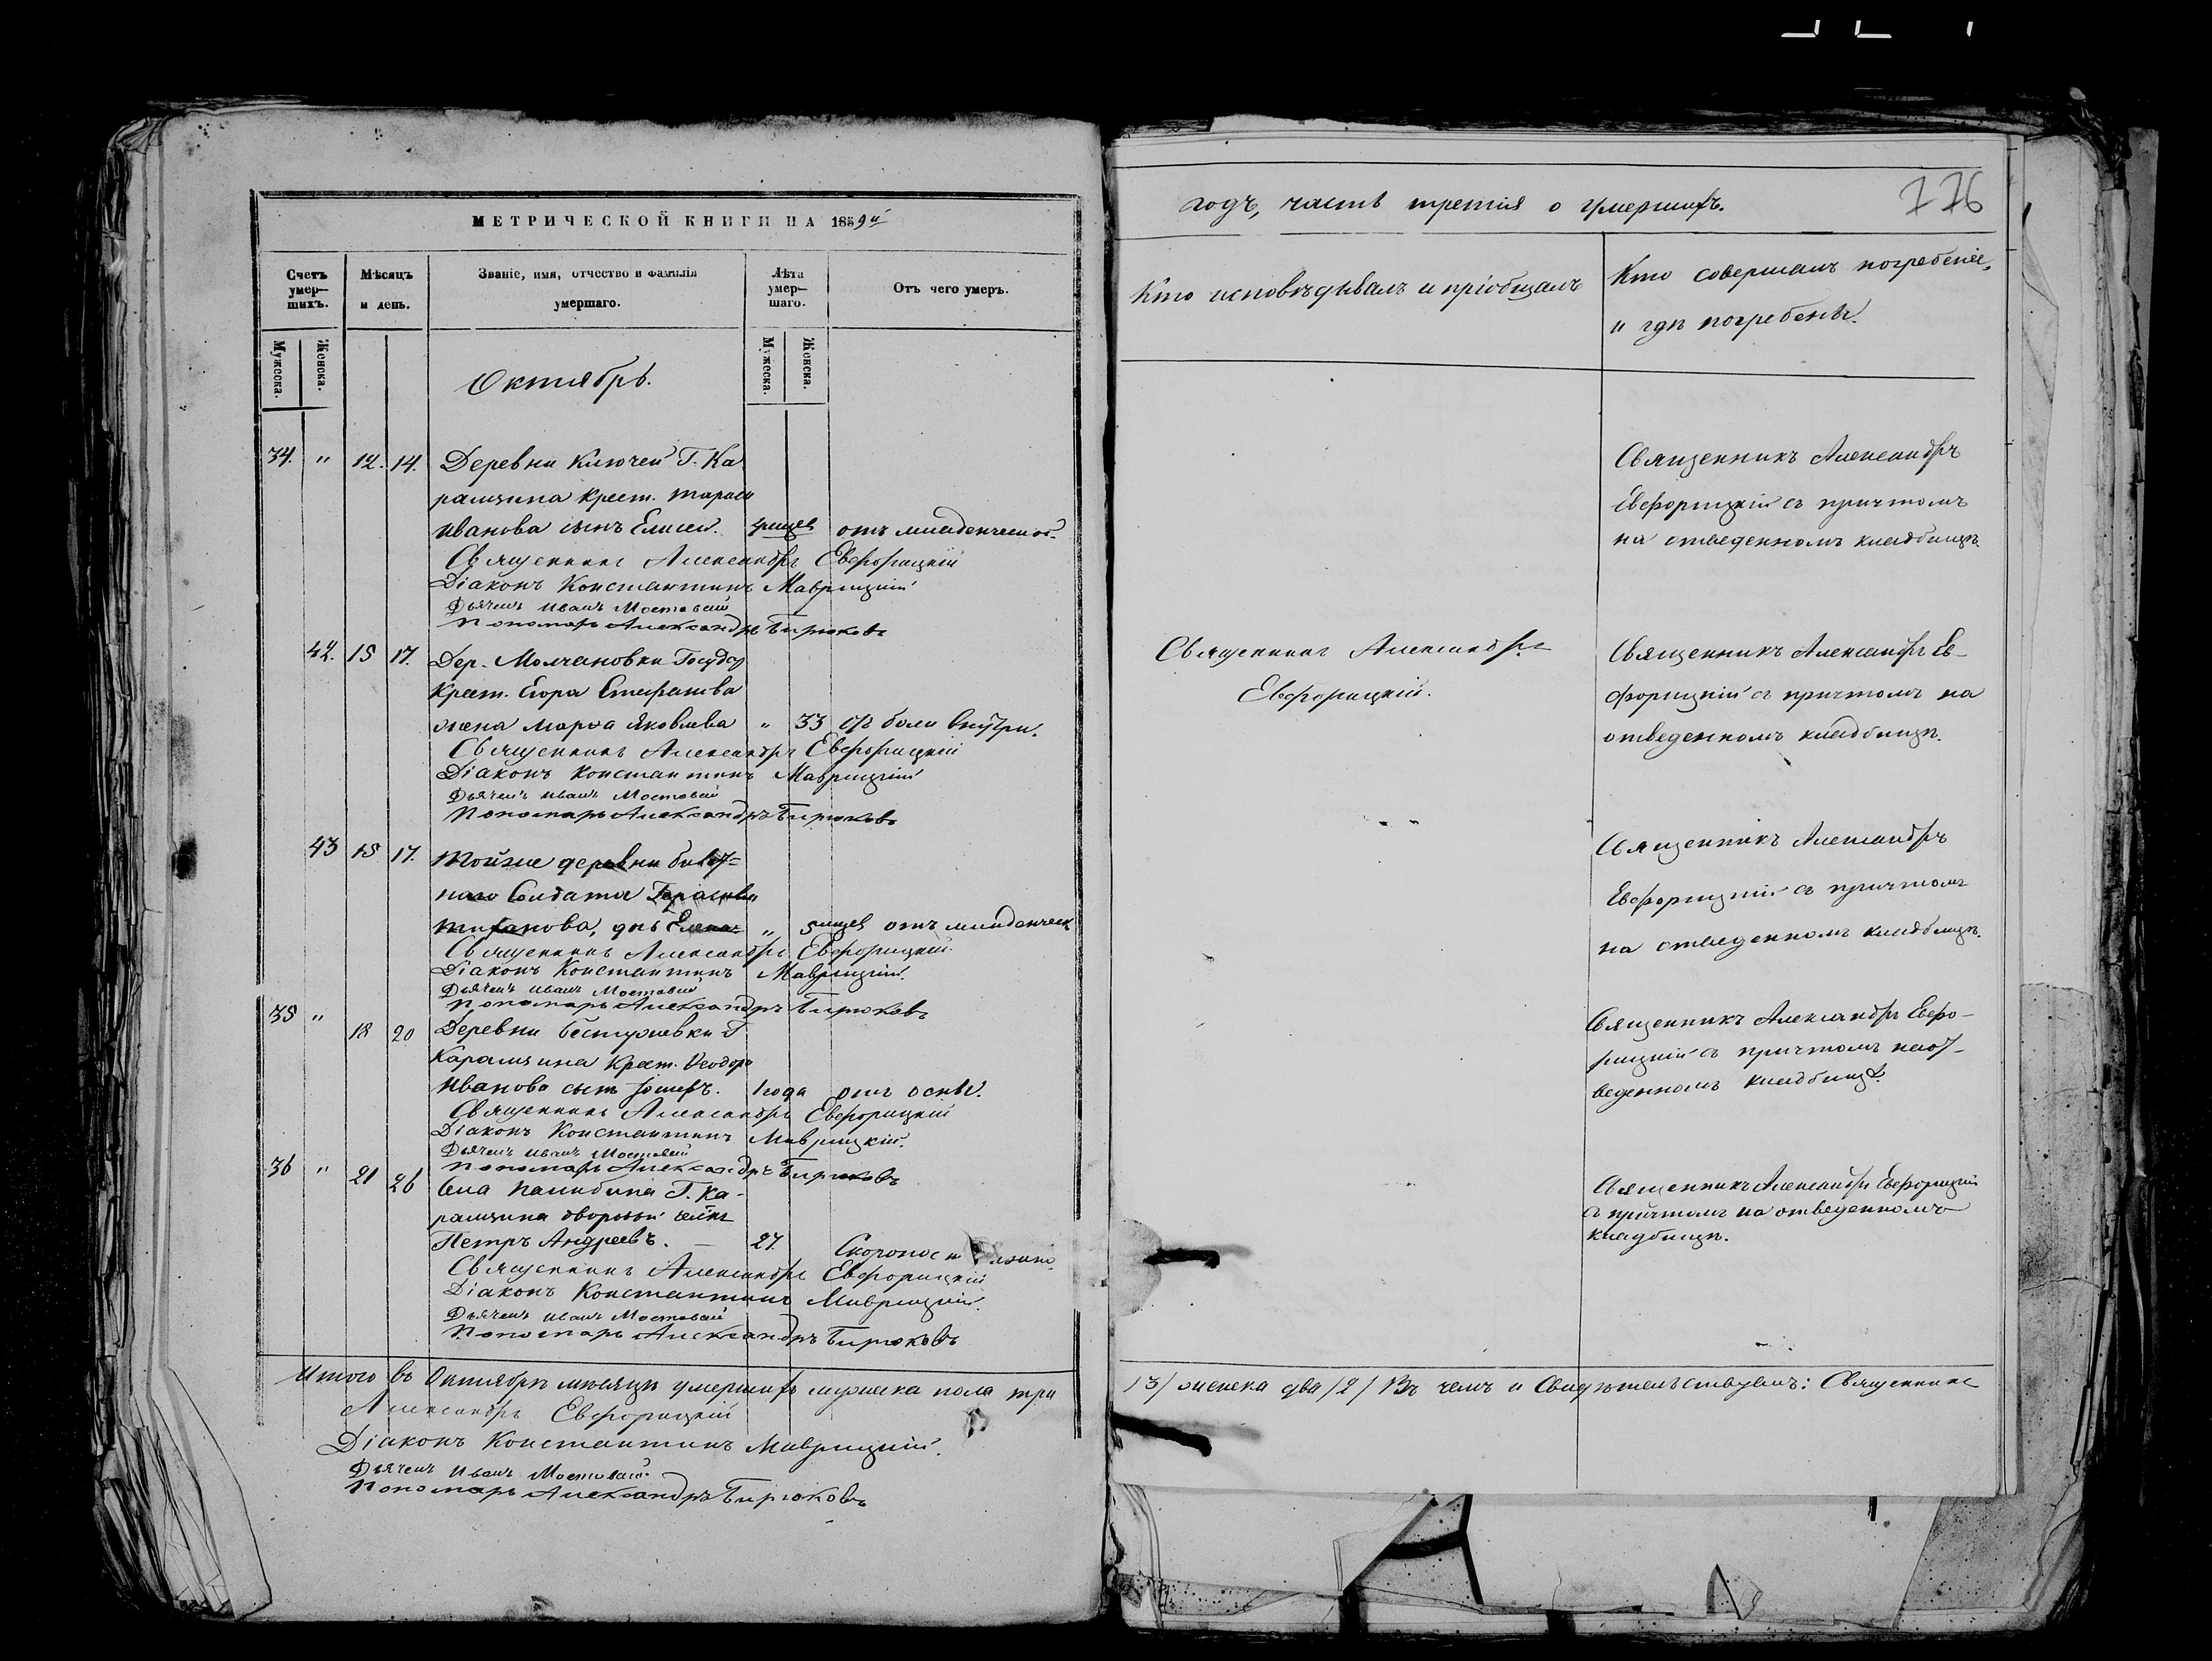 МЕТРИЧЕСКОЙ КНИГИ НА 1859й
Счетъ умер-шихъ.
Мѣсяцъ и день.
Званіе, имя, отчество и фамилія умершаго.
Лѣта умер-шаго.
Отъ чего умеръ.
Мужеска.
Женска.
Мужеска.
Женска.
Октябрь.
34. " 12. 14. Деревни Ключей Г. Ка
рамзина крест. Тараса
Иванова сынъ Елисей. отъ младенческой.
Священникъ Александръ Евфорицкій
Діаконъ Константинъ Маврицкій
Дьячекъ Иванъ Мостовой
Пономарь Александръ Бирюковъ
42. 15 17. Дер. Молчановки Госуд
Крест. Егора Стефанова
жена Марѳа Яковлева " 33 отъ боли внутри.
Священникъ Александръ Евфорицкій
Діаконъ Константинъ Маврицкій
Дьячекъ Иванъ Мостовой
Пономарь Александръ Бирюковъ
43 15 17. Тойже деревни
наго Солдата
дчь Елена " отъ младенческ
Священникъ Александръ Евфорицкій
Діаконъ Константинъ Маврицкій
Дьячекъ Иванъ Мостовой
Пономарь Александръ Бирюковъ
35 " 18 20 Деревни Бестужевки Г.
Карамзина Крест. Ѳеодора
Иванова сынъ Іосифъ. 1 года отъ оспы.
Священникъ Александръ Евфорицкій
Діаконъ Константинъ Маврицкій.
Дьячекъ Иванъ Мостовой
Пономарь Александръ Бирюковъ
36 " 21 26 Села Палибина Г. Ка-
рамзина дворовый
Петръ Андреевъ. — 27.
Священникъ Александръ Евфорицкій
Діаконъ Константинъ Маврицкій.
Дьячекъ Иванъ Мостовой
Пономарь Александръ Бирюковъ
Итого въ Октябрѣ мѣсяцѣ умершихъ мужеска пола три
Александръ Евфорицкій
Діаконъ Константинъ Маврицкій.
Дьячекъ Иванъ Мостовой
Пономарь Александръ Бирюковъ
776
годъ, часть третія о умершихъ.
Кто исповѣдывалъ и пріобщалъ
Кто совершалъ погребеніе,
и гдѣ погребены.
Священникъ Александръ
Евфорицкій съ причтомъ
на отведенномъ кладбищѣ.
Священникъ Александръ
Евфорицкій.
Священникъ Александръ Ев-
форицкій съ причтомъ на
отведенномъ кладбищѣ.
Священникъ Александръ
Евфорицкій съ причтомъ
на отведенномъ кладбищѣ.
Священникъ Александръ Евфо-
рицкій съ причтомъ на от-
веденномъ кладбищѣ.
Священникъ Александръ Евфорицкій
съ причтомъ на отведенномъ
кладбищѣ.
/3/ женска два /2/ Въ чемъ и Свидѣтельствуемъ: Священникъ